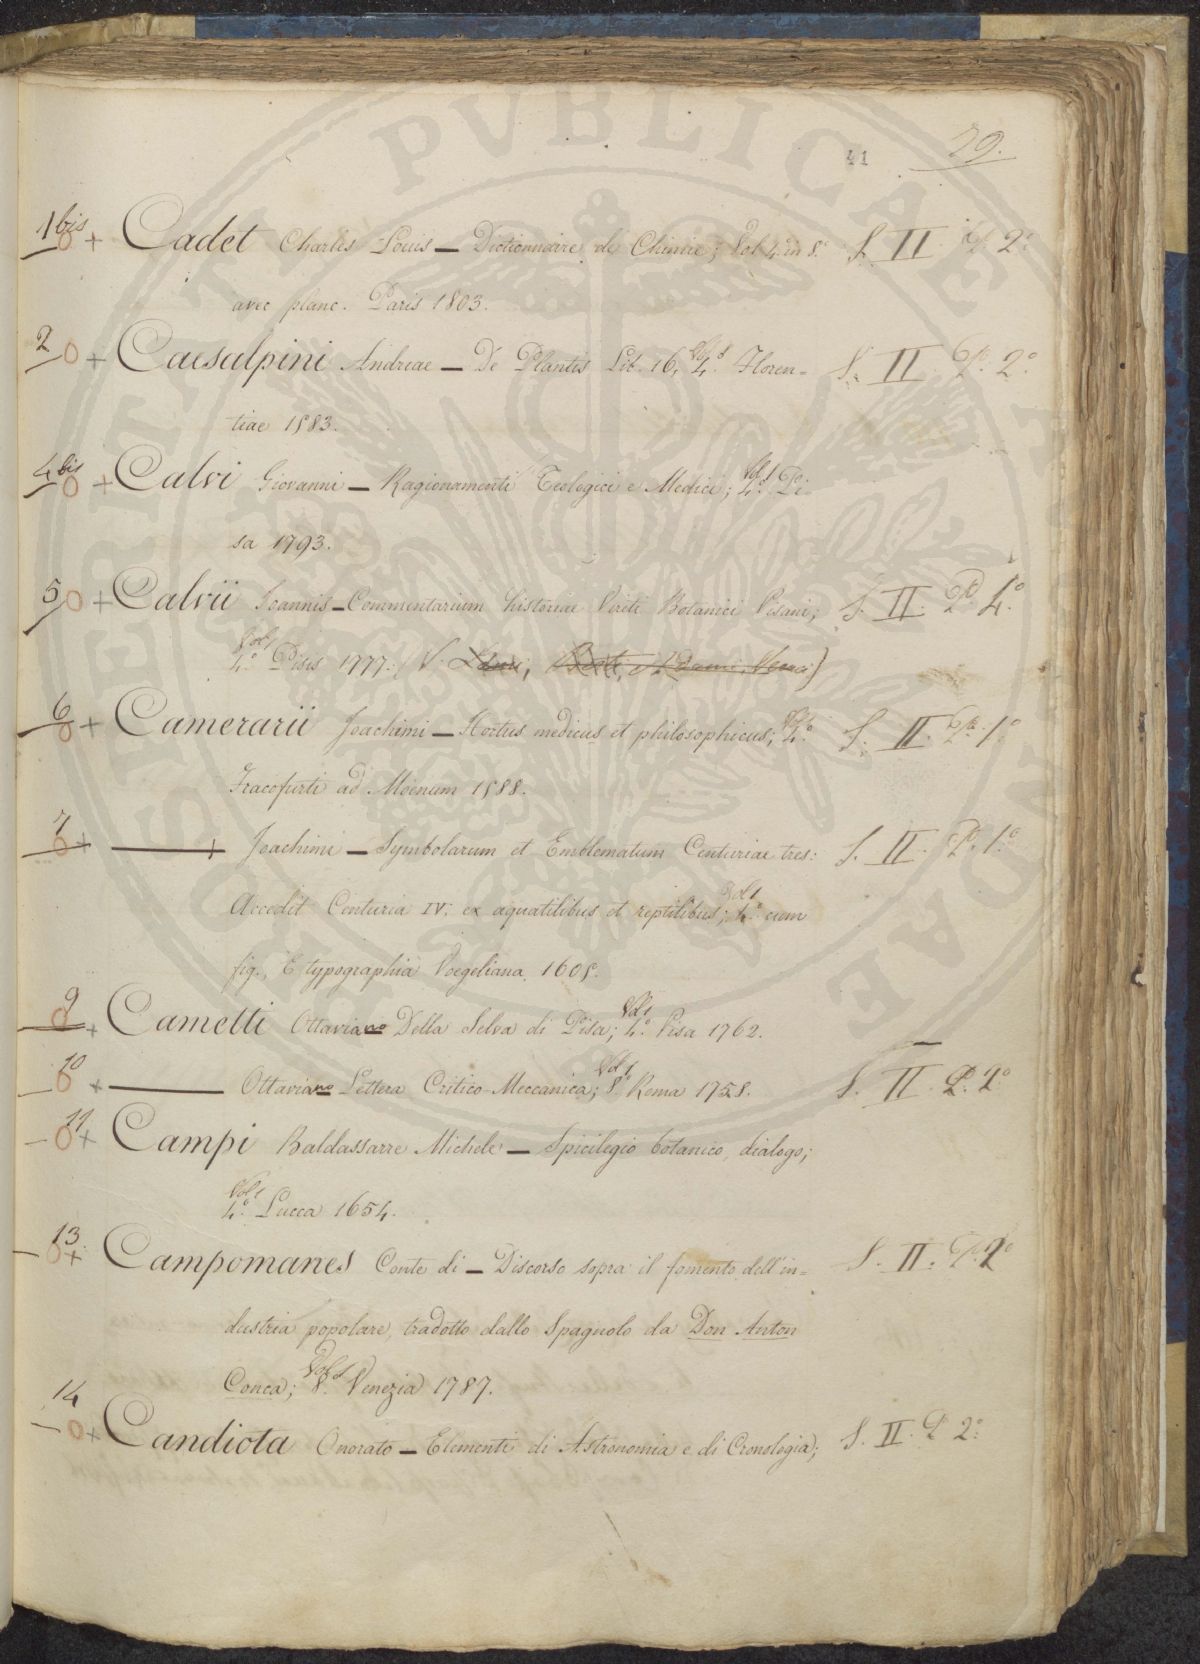 41 29.
1 bis 0 + Cadet Charles Louis — Dictionnaire de Chimie; Vol 4. in 8.° S. II P. 2°
avec planc. Paris 1803.
2 0 + Caesalpini Andreae — De Plantis Lib. 16, Vol 1 4.° Floren= S. II. P. 2.°
tiae 1583.
4 bis 0 + Calvi Giovanni — Ragionamenti Teologici e Medici; Vol 1 4.° Pi=
sa 1793.
5 0 + Calvii Joannis — Commentarium historiae Vireti Botanici Pisani; S. II. P. 4.°
Vol 1 4.° Pisis 1777. (V.
6 0 + Camerarii Joachimi — Hortus medicus et philosophicus; Vol 1 4.° S. II. P. 1.°
Fracofurti ad Moenum 1588.
7 0 + Joachimi — Symbolarum et Emblematum Centuriae tres: S. II. P. 1.°
Accedit Centuria IV. ex aquatilibus et reptilibus; Vol 1 4.° cum
fig., E typographia Voegeliana 1605.
9 0 + Cametti Ottaviano Della Selva di Pisa; Vol 1 4.° Pisa 1762.
10 0 + Ottaviano Lettera Critico-Meccanica; Vol 1 8.° Roma 1758. S. II. P. 2.°
11 0 + Campi Baldassarre Michele — Spicilegio botanico, dialogo;
Vol 1 4.° Lucca 1654.
13 0 + Campomanes Conte di — Discorso sopra il fomento dell'in= S. II. P. 2°
dustria popolare, tradotto dallo Spagnolo da Don Anton
Conca; Vol 1 8.° Venezia 1787.
14 0 + Candiota Onorato — Elementi di Astronomia e di Cronologia; S. II. P. 2.°
PVBLICAE